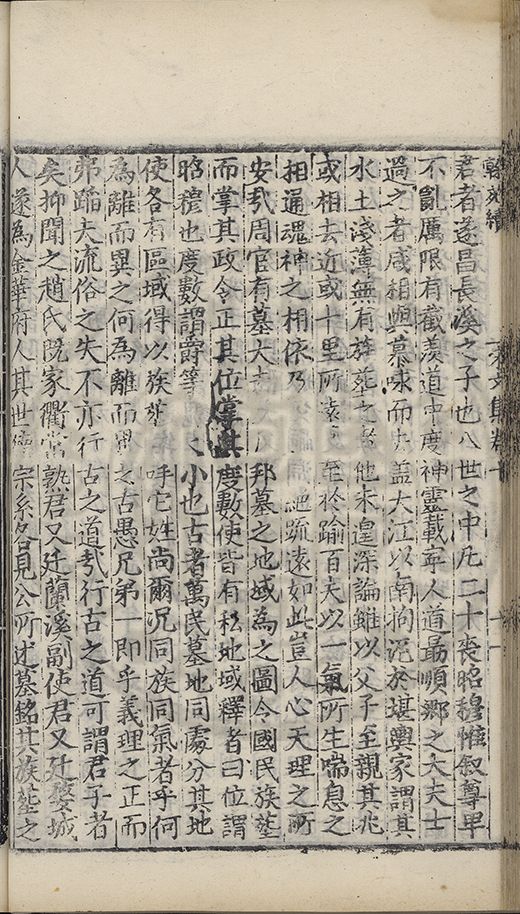 君者遂昌長溪之子也八世之中凡二十喪昭穆惟叙尊卑
不亂厲限有截羨道中度神靈載寧人道最順鄉之大夫士
過之者咸相與慕咏而去蓋大江以南拘泥於堪輿家謂其
水土淺薄無有族葬之者他未遑深論雖以父子至親其兆
或相去近或十里所遠至於踰百夫以一氣所生喘息之
相通魂神之相依乃疏遠如此豈人心天理之所
安哉周官有墓大夫凡邦墓之地域為之圖令國民族葬
而掌其政令正其位掌其度數使皆有私地域釋者曰位謂
昭穆也度數謂爵等之小也古者萬民墓地同處分其地
使各有區域得以族葬呼它姓尚爾況同族同氣者乎何
為離而異之何為離而異之古愚兄弟一即乎義理之正而
弗蹈夫流俗之失不亦行古之道哉行古之道可謂君子者
矣抑聞之趙氏既家衢當孰君又廷蘭溪副使君又廷婺城
人遂為金華府人其世宗系合見公所述墓銘其族葬之